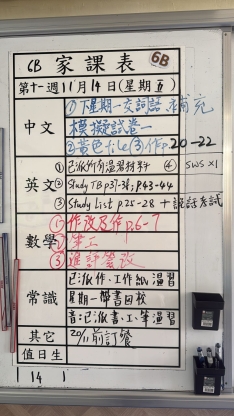 6B 家課表 6B
第十一週 11月14日(星期五)
中文
①下星期一交詞語補充
模擬試卷一
②黃色file(3)作p.20-22
英文
①已派作句温習材料 ④ SWS x1
②Study TB p.37-38; p.43-44
③Study List p.25-28 + 説話考試
數學
①作改及作p.6-7
②筆工
③進評簽改
常識
已派作、工作紙温習
星期一帶書回校
音:已派書、工、筆温習
其它
20/11前訂餐
值日生
14